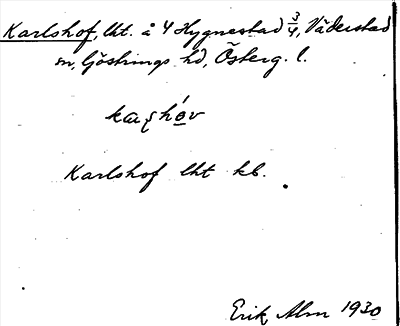 Karlshof, lht. å 4 Hygnestad 3/4, Väderstad
sn, Göstrings hd, Österg. l.
Karlshof lht kb.
Erik Alm 1930